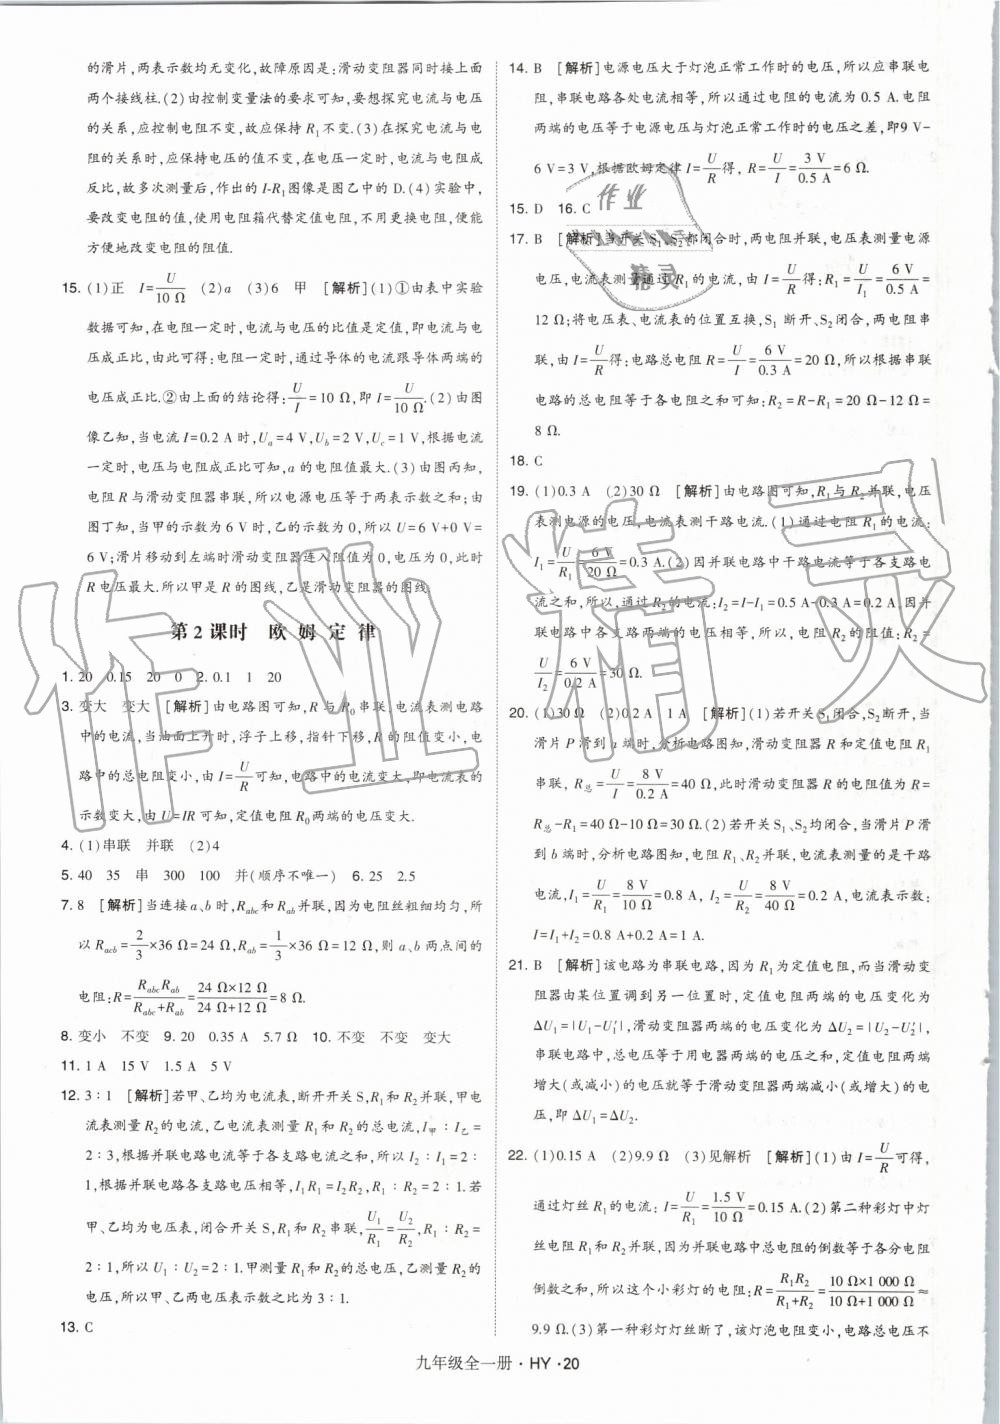 的滑片,两表示数均无变化,故障原因是:滑动变阻器同时接上面
两个接线柱.(2)由控制变量法的要求可知,要想探究电流与电压
的关系,应控制电阻不变,故应保持R₁不变.(3)在探究电流与电
阻的关系时,应保持电压的值不变,在电压一定时,电流与电阻成
反比,故多次测量后,作出的I-R₁图像是图乙中的D.(4)实验中,
要改变电阻的值,使用电阻箱代替定值电阻,不用更换电阻,便能
方便地改变电阻的阻值.
15. (1)正 I=U/10 Ω (2)a (3)6 甲 [解析](1)①由表中实验
数据可知,在电阻一定时,电流与电压的比值是定值,即电流与电
压成正比,由此可得:电阻一定时,通过导体的电流跟导体两端的
电压成正比.②由上面的结论得:U/I=10 Ω,即I=U/10 Ω.(2)由图
像乙知,当电流I=0.2 A时,Ua=4 V,Ub=2 V,Uc=1 V,根据电流
一定时,电压与电阻成正比可知,a的电阻值最大.(3)由图丙知,
电阻R与滑动变阻器串联,所以电源电压等于两表示数之和;由
图丁知,当甲的示数为6 V时,乙的示数为0,所以U=6 V+0 V=
6 V;滑片移动到左端时滑动变阻器连入阻值为0,电压为0,此时
R电压最大.所以甲是R的图线,乙是滑动变阻器的图线.
第2课时 欧姆定律
1. 20 0.15 20 0 2. 0.1 1 20
3. 变大 变大 [解析]由电路图可知,R与R₀串联,电流表测电路
中的电流,当油面上升时,浮子上移,指针下移,R的阻值变小,电
路中的总电阻变小,由I=U/R可知,电路中的电流变大,即电流表的
示数变大,由U=IR可知,定值电阻R₀两端的电压变大.
4. (1)串联 并联 (2)4
5. 40 35 串 300 100 并(顺序不唯一) 6. 25 2.5
7. 8 [解析]当连接a、b时,Rabc和Rab并联,因为电阻丝粗细均匀,所
以Racb=2/3×36 Ω=24 Ω,Rab=1/3×36 Ω=12 Ω,则a、b两点间的
电阻:R=RabcRab/(Rabc+Rab)=24 Ω×12 Ω/(24 Ω+12 Ω)=8 Ω.
8. 变小 不变 9. 20 0.35 A 5.7 Ω 10. 不变 不变 变大
11. 1 A 15 V 1.5 A 5 V
12. 3∶1 [解析]若甲、乙均为电流表,断开开关S,R₁和R₂并联,甲电
流表测量R₂的电流,乙电流表测量R₁和R₂的总电流,I甲∶I乙=
2∶3,根据并联电路电流等于各支路电流之和,所以I₂∶I₁=2∶
1,根据并联电路各支路电压相等,I₁R₁=I₂R₂,R₁∶R₂=2∶1.若
甲、乙均为电压表,闭合开关S,R₁和R₂串联,U₁/R₁=U₂/R₂,R₁∶R₂=
2∶1,所以U₁∶U₂=2∶1.甲测量R₁和R₂的总电压,乙测量R₂
的电压,所以甲、乙两电压表示数之比为3∶1.
13. C
14. B [解析]电源电压大于灯泡正常工作时的电压,所以应串联电
阻,串联电路各处电流相等,所以通过电阻的电流为0.5 A.电阻
两端的电压等于电源电压与灯泡正常工作时的电压之差,即9 V-
6 V=3 V,根据欧姆定律I=U/R得,R=U/I=3 V/0.5 A=6 Ω.
15. D 16. C
17. B [解析]当开关S₁、S₂都闭合时,两电阻并联,电压表测量电源
电压,电流表测量通过R₁的电流,由I=U/R得:R₁=U/I₁=6 V/0.5 A=
12 Ω;将电压表、电流表的位置互换,S₁断开、S₂闭合,两电阻串
联,由I=U/R得:电路总电阻R=U/I=6 V/0.3 A=20 Ω,所以根据串联
电路的总电阻等于各电阻之和可知:R₂=R-R₁=20 Ω-12 Ω=
8 Ω.
18. C
19. (1)0.3 A (2)30 Ω [解析]由电路图可知,R₁与R₂并联,电压
表测电源的电压,电流表测干路电流.(1)通过电阻R₁的电流:
I₁=U/R₁=6 V/20 Ω=0.3 A.(2)因并联电路中干路电流等于各支路电
流之和,所以,通过R₂的电流:I₂=I-I₁=0.5 A-0.3 A=0.2 A.因并
联电路中各支路两端的电压相等,所以,电阻R₂的阻值:R₂=
U/I₂=6 V/0.2 A=30 Ω.
20. (1)30 Ω (2)0.2 A 1 A [解析](1)若开关S₁闭合,S₂断开,当
滑片P滑到a端时,分析电路图知,滑动变阻器R和定值电阻R₁
串联, R总=U/I=8 V/0.2 A=40 Ω,此时滑动变阻器R的电阻值为R=
R总-R₁=40 Ω-10 Ω=30 Ω.(2)若开关S₁、S₂均闭合,当滑片P滑
到b端时,分析电路图知,电阻R₁、R₂并联,电流表测量的是干路
电流,I₁=U/R₁=8 V/10 Ω=0.8 A, I₂=U/R₂=8 V/40 Ω=0.2 A,电流表示数:
I=I₁+I₂=0.8 A+0.2 A=1 A.
21. B [解析]该电路为串联电路,因为R₁为定值电阻,而当滑动变
阻器由某位置调到另一位置时,定值电阻两端的电压变化为
ΔU₁=|U₁-U₁′|,滑动变阻器两端的电压变化为ΔU₂=|U₂-U₂′|,
串联电路中,总电压等于用电器两端的电压之和,定值电阻两端
增大(或减小)的电压就等于滑动变阻器两端减小(或增大)的电
压,即ΔU₁=ΔU₂.
22. (1)0.15 A (2)9.9 Ω (3)见解析 [解析](1)由I=U/R可得,
通过灯丝R₁的电流:I=U/R₁=1.5 V/10 Ω=0.15 A.(2)第二种彩灯中灯
丝电阻R₁和R₂并联,因为并联电路中总电阻的倒数等于各分电阻
倒数之和,所以这个小彩灯的电阻:R=R₁R₂/(R₁+R₂)=10 Ω×1 000 Ω/(10 Ω+1 000 Ω)≈
9.9 Ω.(3)第一种彩灯灯丝断了,该灯泡电阻变小,电路总电压不
九年级全一册·HY·20
作业精灵
作业
精灵